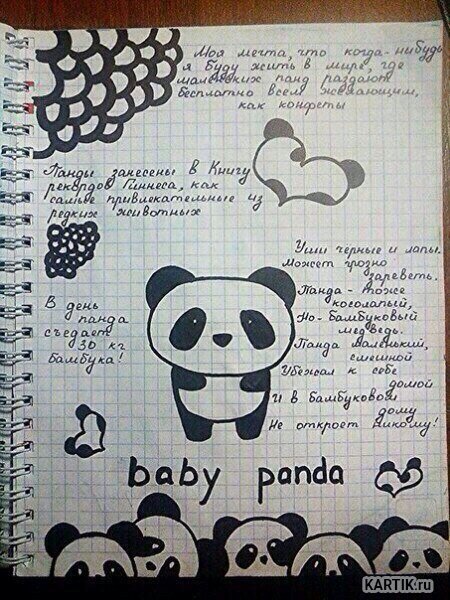 Моя мечта, что когда-нибудь
я буду жить в мире, где
маленьких панд раздают
бесплатно всем желающим,
как конфеты
Панды занесены в Книгу
рекордов Гиннеса, как
самые привлекательные из
редких животных
Уши черные и лапы.
Может грозно
зареветь.
Панда - тоже
косолапый,
Но - бамбуковый
медведь.
Панда маленький,
смешной
Убежал к себе
домой
И в бамбуковом
дому
Не откроет никому!
В день
панда
съедает
30 кг
бамбука!
baby panda
KARTIK.ru